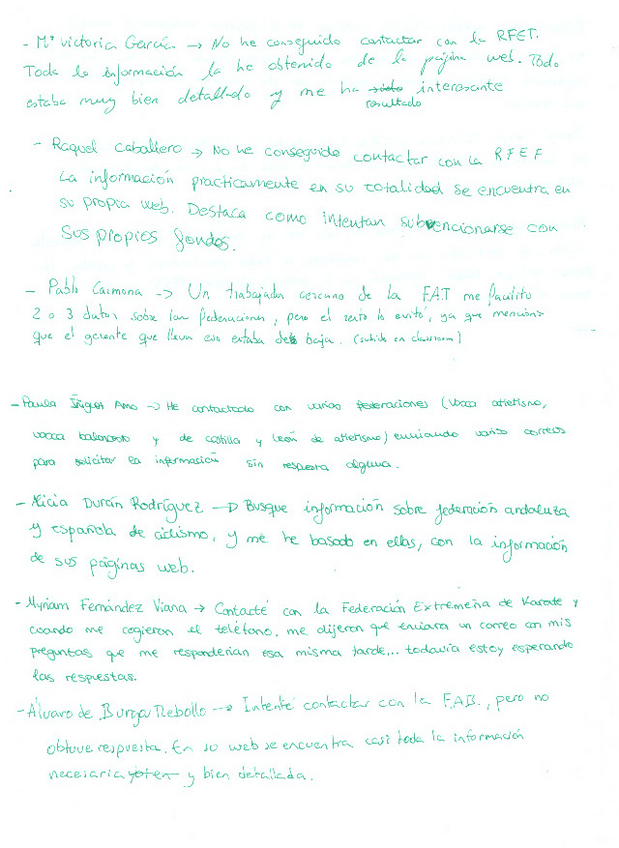 - Mª Victoria García → No he conseguido contactar con la RFET.
Toda la información la he obtenido de la página web. Todo
estaba muy bien detallado y me ha resultado interesante
- Raquel Caballero → No he conseguido contactar con la RFEF
La información practicamente en su totalidad se encuentra en
su propia web. Destaca como intentan subvencionarse con
sus propios fondos.
- Pablo Carmona → Un trabajador cercano de la FAT me facilito
2 o 3 datos sobre las federaciones, pero el resto lo evitó, ya que menciono
que el gerente que lleva eso estaba de baja. (subido en classroom)
- Paula Íñiguez Amo → He contactado con varias federaciones (vasca atletismo,
vasca baloncesto y de castilla y león de atletismo) enviando varios correos
para solicitar la información sin respuesta alguna.
- Alicia Durán Rodríguez → Busque información sobre federación andaluza
y española de ciclismo, y me he basado en ellas, con la información
de sus páginas web.
- Myriam Fernández Viana → Contacté con la Federación Extremeña de Karate y
cuando me cogieron el teléfono, me dijeron que enviara un correo con mis
preguntas que me responderían esa misma tarde... todavía estoy esperando
las respuestas.
- Álvaro de Burga Rebollo → Intenté contactar con la F.A.B., pero no
obtuve respuesta. En su web se encuentra casi toda la información
necesaria y bien detallada.